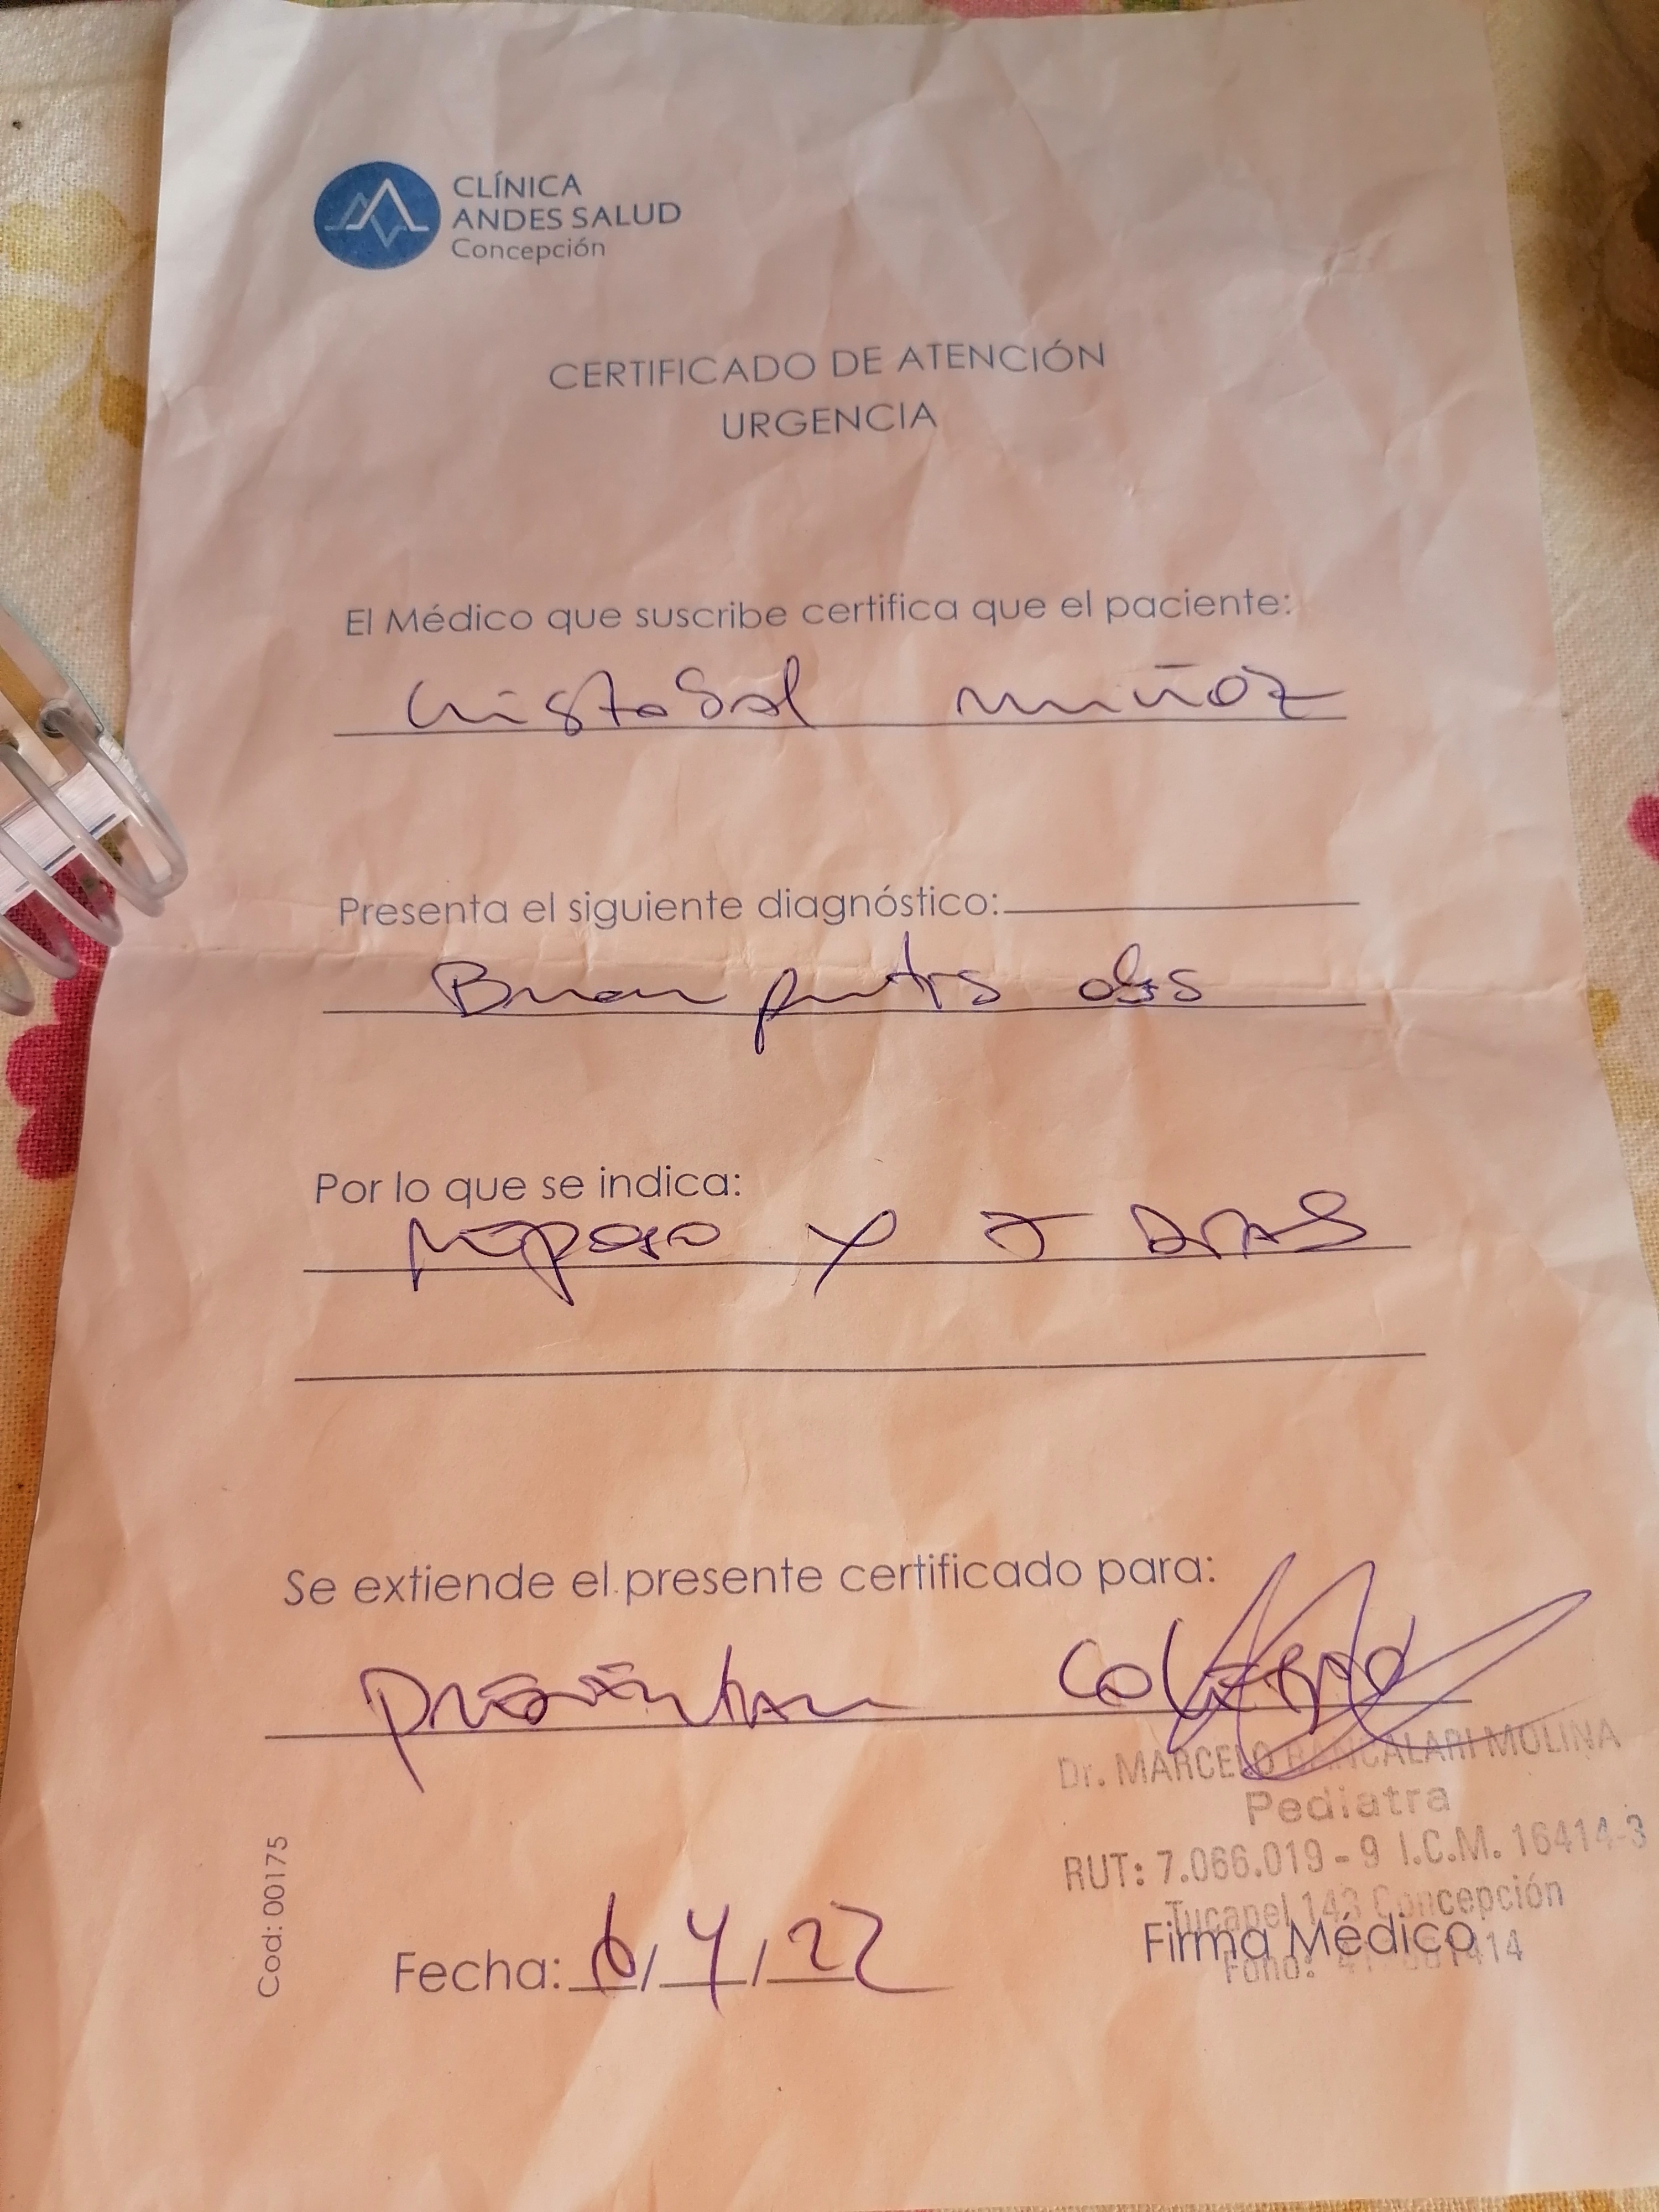 CLÍNICA
ANDES SALUD
Concepción
CERTIFICADO DE ATENCIÓN
URGENCIA
El Médico que suscribe certifica que el paciente:
Cristobal Muñoz
Presenta el siguiente diagnóstico:
obs
Por lo que se indica:
Reposo x DIAS
Se extiende el presente certificado para:
presentar colegio
Dr. MARCELO BANCALARI MOLINA
Pediatra
RUT: 7.066.019-9 I.C.M. 16414-3
Tucapel 143 Concepción
Firma Médico
Fono:
Fecha: 6/4/22
Cod: 00175